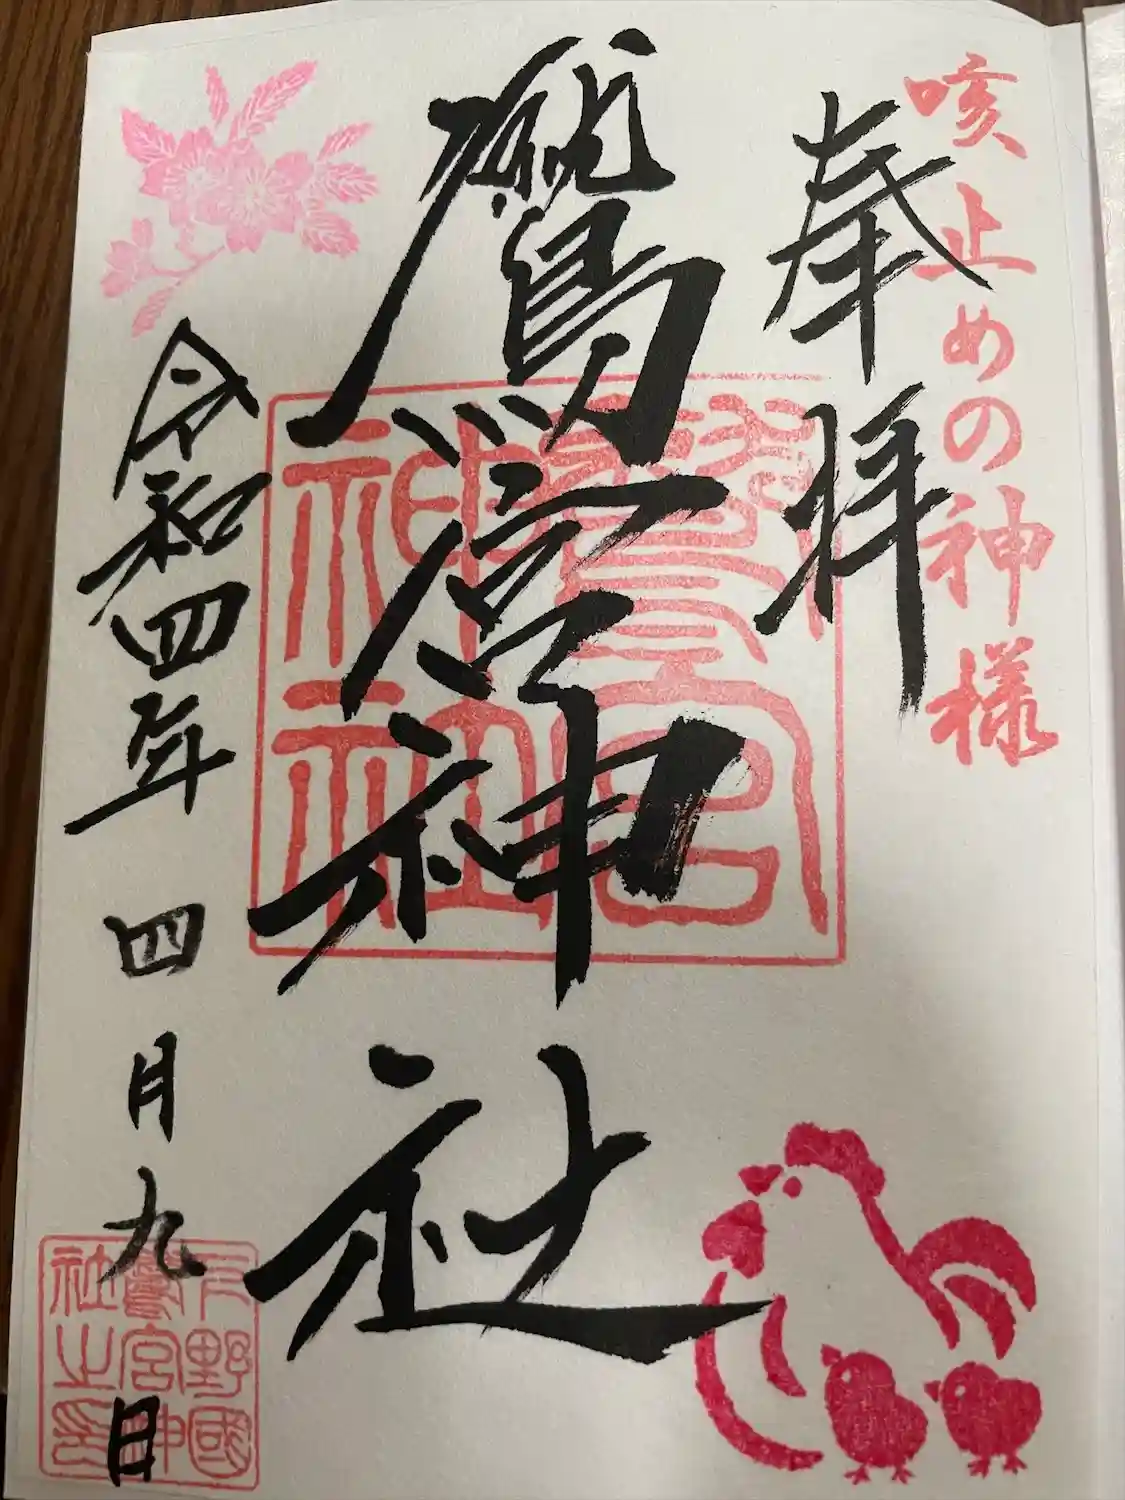 咳止めの神様
奉拝
鷲宮神社
鷲宮
神社
令和四年 四月九日
下野國
鷲宮神
社之印